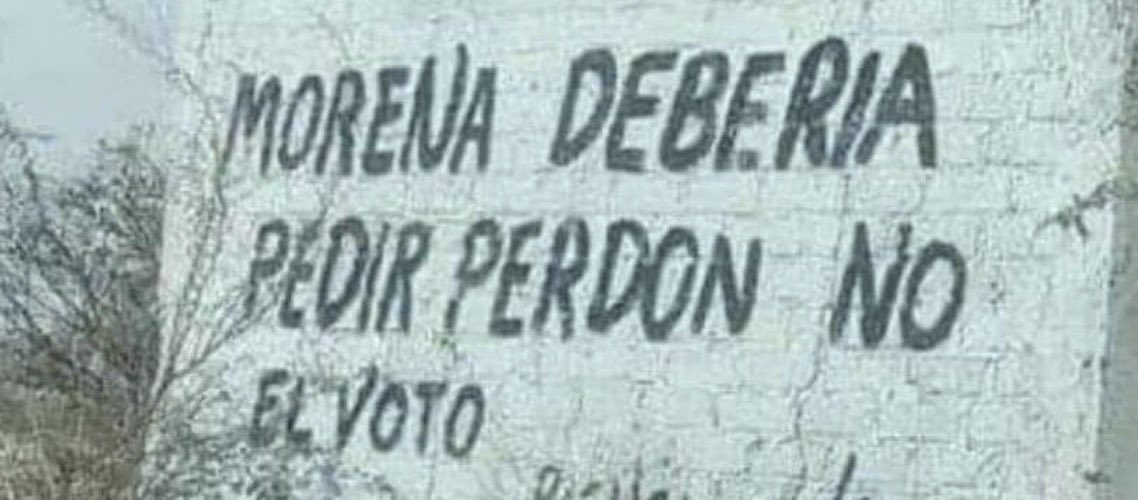 MORENA DEBERIA
PEDIR PERDON NO
EL VOTO